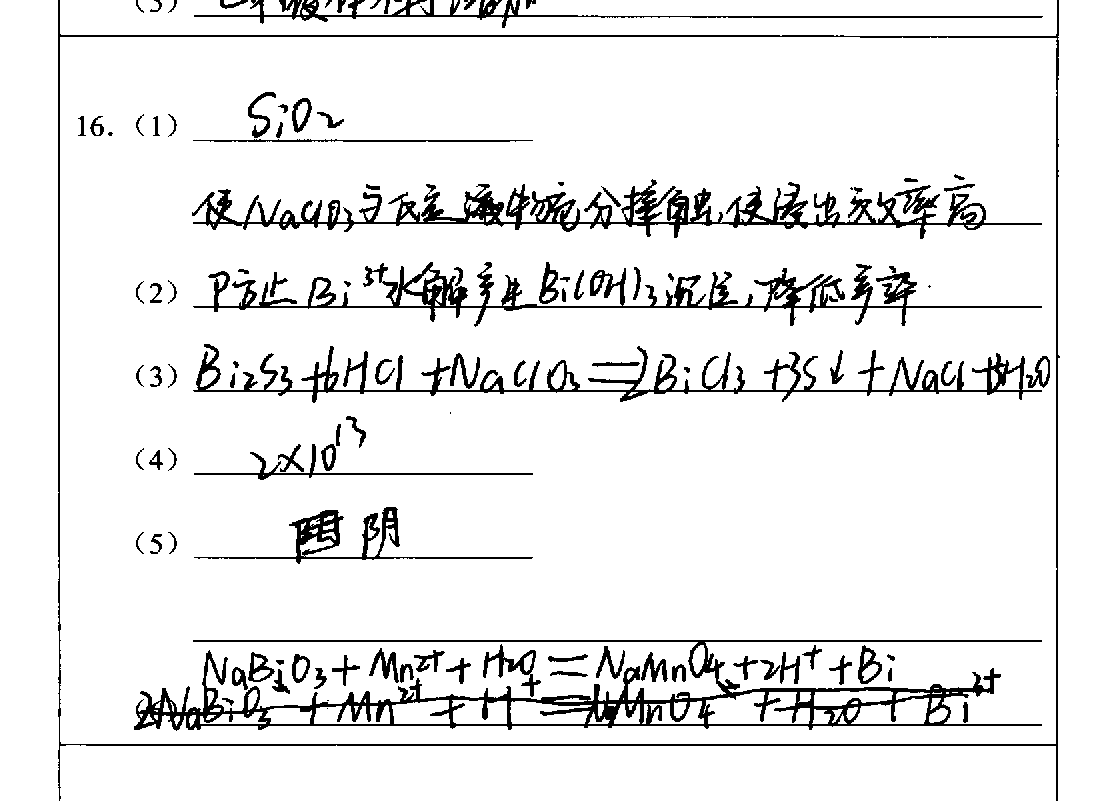 16.（1） SiO2
使NaClO3与反应液物充分接触，使浸出效率高
（2） 防止Bi3+水解产生Bi(OH)3沉淀，降低产率.
（3） Bi2S3+6HCl+NaClO3=2BiCl3+3S↓+NaCl+3H2O
（4） 2×10^13
（5） 阴
NaBiO3+Mn2++H2O=NaMnO4+2H++Bi